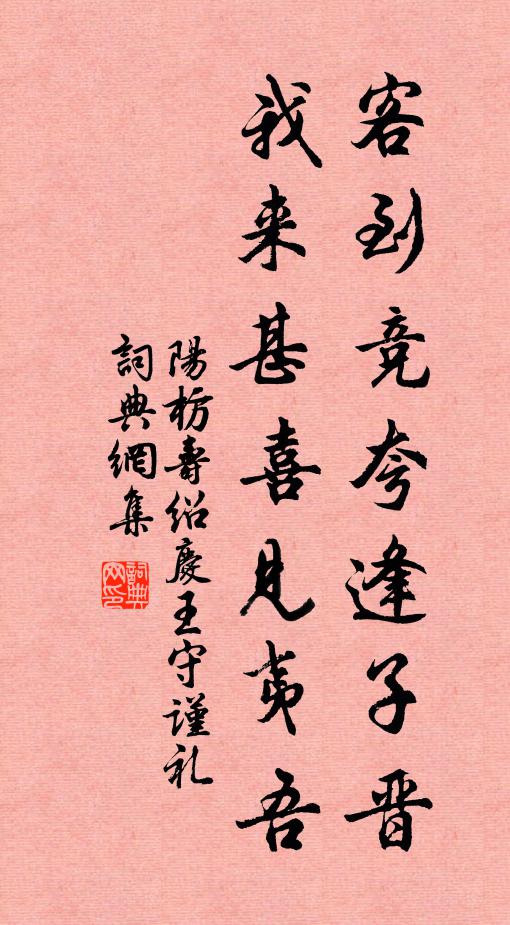 客到竞夸逢子晋
我来甚喜见夷吾
陽枋壽绍慶王守謹礼
詞典網集
詞典网印